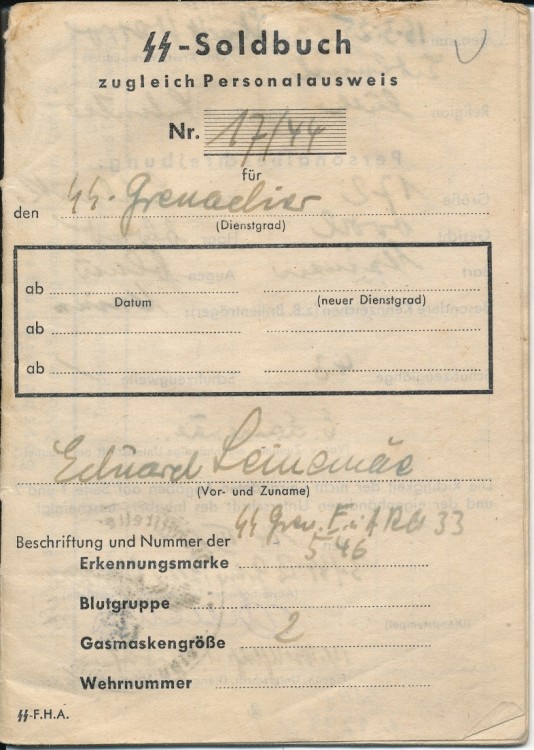 SS-Soldbuch
zugleich Personalausweis
Nr. 17/44
für
den SS-Grenadier
(Dienstgrad)
ab
Datum (neuer Dienstgrad)
ab
ab
Eduard Leinemäe
(Vor- und Zuname)
Beschriftung und Nummer der SS Gren. E. u. A. Rgt 33
Erkennungsmarke 546
Blutgruppe
Gasmaskengröße 2
Wehrnummer
SS-F.H.A.